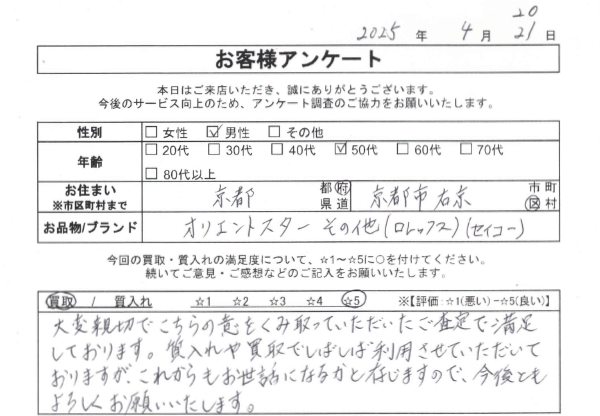 20
2025 年 4 月 21 日
お客様アンケート
本日はご来店いただき、誠にありがとうございます。
今後のサービス向上のため、アンケート調査のご協力をお願いいたします。
性別 □ 女性 ☑ 男性 □ その他
年齢 □ 20代 □ 30代 □ 40代 ☑ 50代 □ 60代 □ 70代
□ 80代以上
お住まい ※市区町村まで 京都 都 府 県 道 京都市右京 市 町 区 村
お品物/ブランド オリエントスター その他(ロレックス)(セイコー)
今回の買取・質入れの満足度について、☆1~☆5に○を付けてください。
続いてご意見・ご感想などのご記入をお願いいたします。
買取 / 質入れ ☆1 ☆2 ☆3 ☆4 ☆5 ※【評価:☆1(悪い)−☆5(良い)】
大変親切でこちらの意をくみ取っていただいたご査定で満足
しております。質入れや買取でしばしば利用させていただいて
おりますが、これからもお世話になるかと存じますので、今後とも
よろしくお願いいたします。